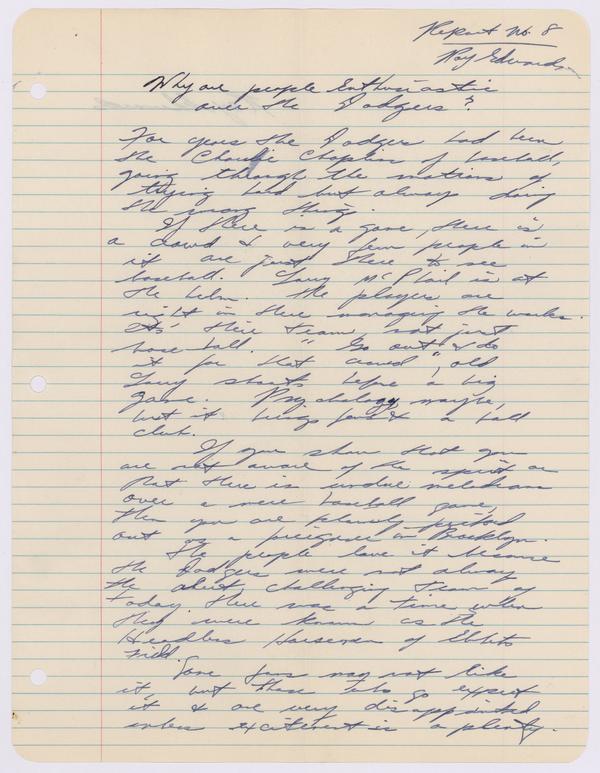 Report No. 8
Roy Edwards
Why are people Enthusiastic
over the Dodgers?
For years the Dodgers had been
the Charlie Chaplin of baseball,
going through the motions of
trying hard but always doing
the wrong things.
If there is a game, there is
a crowd & very few people in
it are just there to see
baseball. Larry McPhail is at
the helm. The players are
right in there managing the works.
Its' there team, not just
base ball. "Go out & do
it for that crowd", old
Larry shouts before a big
game. Psychology maybe,
but it brings fans & a ball
club.
If you show that you
are not aware of the spirit or
that there is undue melodrama
over a mere baseball game,
then you are plainly pointed
out as a foreigner in Brooklyn.
The people love it because
the Dodgers were not always
the alert, challenging team of
today. There was a time when
they were known as the
Headless Horsemen of Ebbets
Field.
Some fans may not like
it, but those who go expect
it & are very disappointed
unless excitement is a plenty.